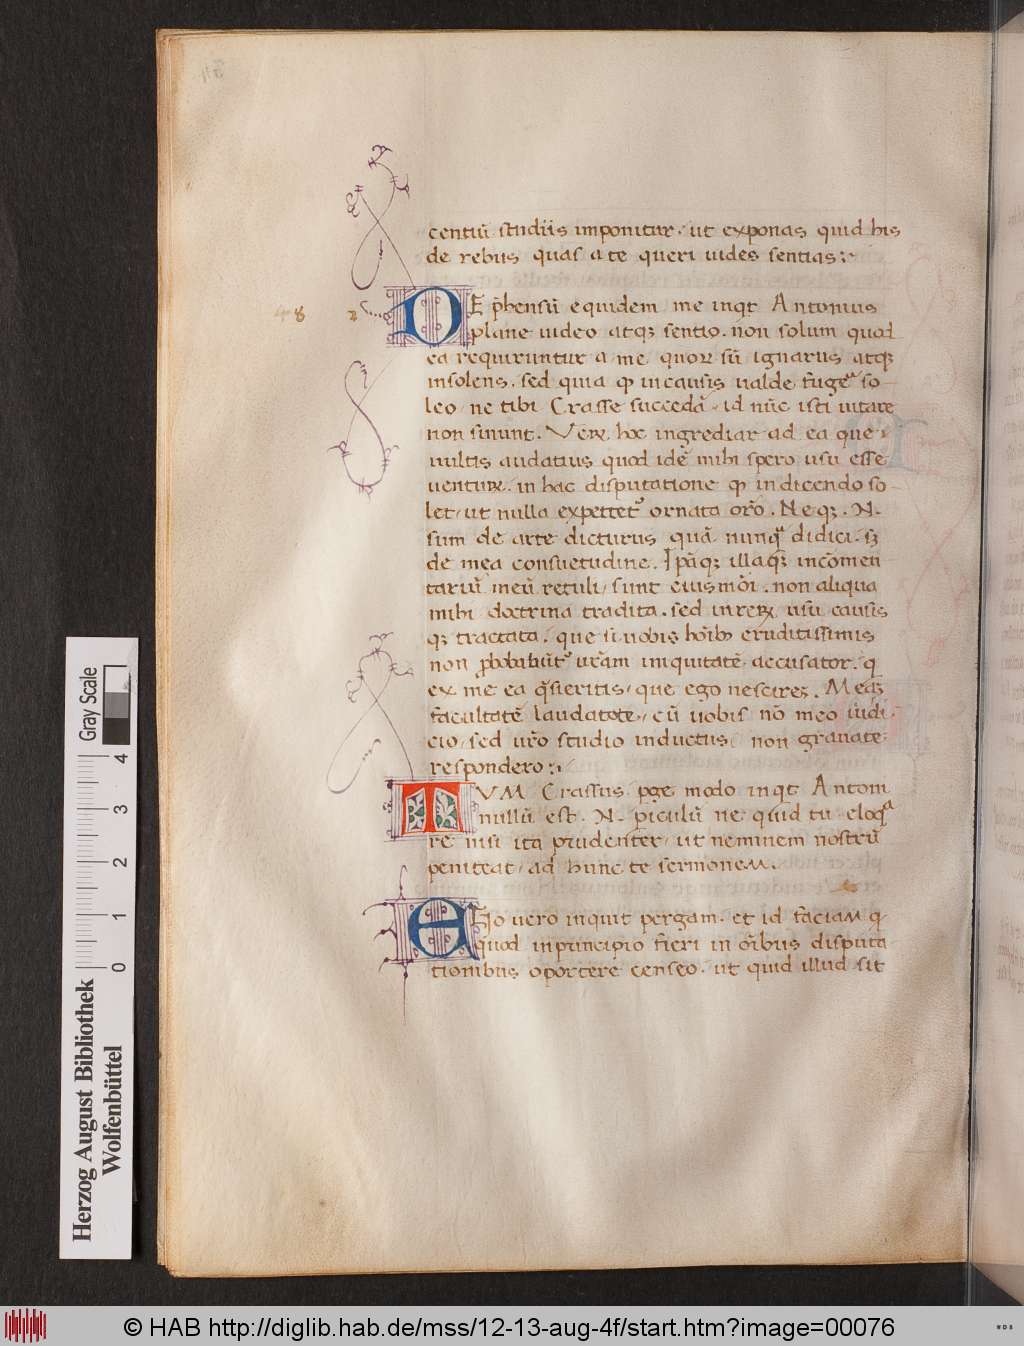 centiū studiis imponitur. ut exponas quid his
de rebus quas a te queri uides sentias:
48
DEp̄hensū equidem me inqt Antonius
plane uideo atqꝫ sentio. non solum quod
ea requiruntur a me quoꝝ sū ignarus atqꝫ
insolens. sed quia ꝙ in causis ualde fuge so
leo. ne tibi Crasse succedā. id nūc isti uitare
non sinunt. Veꝝ hoc ingrediar ad ea que
uultis audatius quod idē mihi spero usu esse
uentuꝝ. in hac disputatione ꝙ in dicendo so
let. ut nulla expettet᷒ ornata orō. Neqꝫ. N.
sum de arte dicturus quā nunq̄ didici. sꝫ
de mea consuetudine. Ipāqꝫ illaqꝫ in cōmen
tariū meū retuli. sunt eiusmōi. non aliqua
mihi doctrina tradita. sed in reꝝ usu causis
qꝫ tractata. que si uobis hoīibꝫ eruditissimis
non ꝓbabūt᷒ urām iniquitatē accusator. q
ex me ea q̄sieritis. que ego nescireꝫ. Meāqꝫ
facultatē laudatote. cū uobis nō meo iudi
cio. sed urō studio inductus non grauate
respondero:
TVM Crassus. ꝑge modo inqt Antoni
nullū est. N. ꝑiculū ne quid tu eloq̄
re nisi ita prudenter. ut neminem nostrū
peniteat. ad hunc te sermonem.
EGo uero inquit pergam. et id faciam q
quod in principio fieri in oībus disputa
tionibus oportere censeo. ut quid illud sit
Herzog August Bibliothek
Wolfenbüttel
0 1 2 3 4
Gray Scale
© HAB http://diglib.hab.de/mss/12-13-aug-4f/start.htm?image=00076